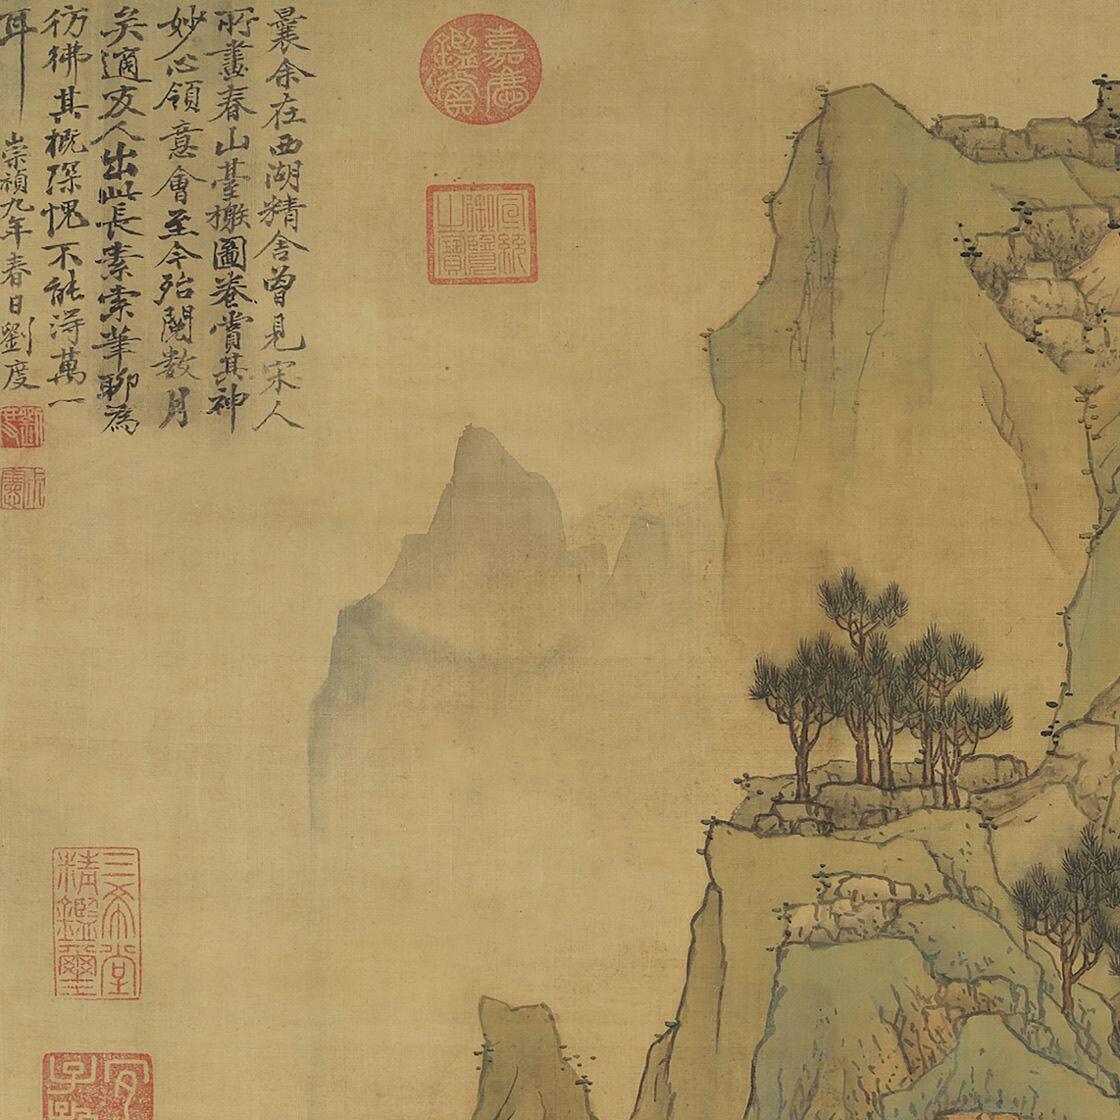 曩余在西湖精舍曾見宋人
所畫春山臺榭圖卷賞其神
妙心領意會至今殆閱數月
矣適友人出此長素索筆聊為
彷彿其概深愧不能得萬一
耳
崇禎九年春日劉度
嘉慶
鑑賞
宣統
御覽
之寶
三希堂
精鑑璽
宜
子